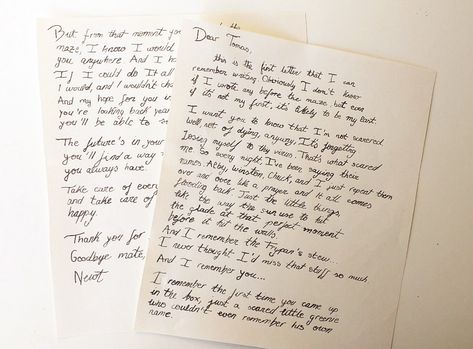 Dear Tomas,
this is the first letter that I can
remember writing. Obviously I don't know
if I wrote any before the maze, but even
if it's not my first, it's likely to be my last.
I want you to know that I'm not scareed.
well, not of dying, anyway. It's forgetting
losing myself to thy virus. That's what scared
me so every night I've been saying their
names. Alby, Winston, Chuck, and I just repeat them
over and over like a prayer and it all comes
flooding back. Just the little things,
like the way the sun use to hit
the glade at that perfect moment
before it hit the walls
And I remember the Frypan's stew...
I never thought I'd miss that stuff so much
And I remember you...
I remember the first time you came up
in the box, just a scared little greenie
who couldn't even remember his own
name.
But from that moment yo the
maze, I know I would
you anywhere And I h
If I could do It all
I would, and I wouldn't cha
And my hope for you i
you're looking back year
you'll be able to
The future's in your
you'll find a way
you always have.
Take care of every
and take care of
happy.
Thank you for
Goodbye mate,
Newt